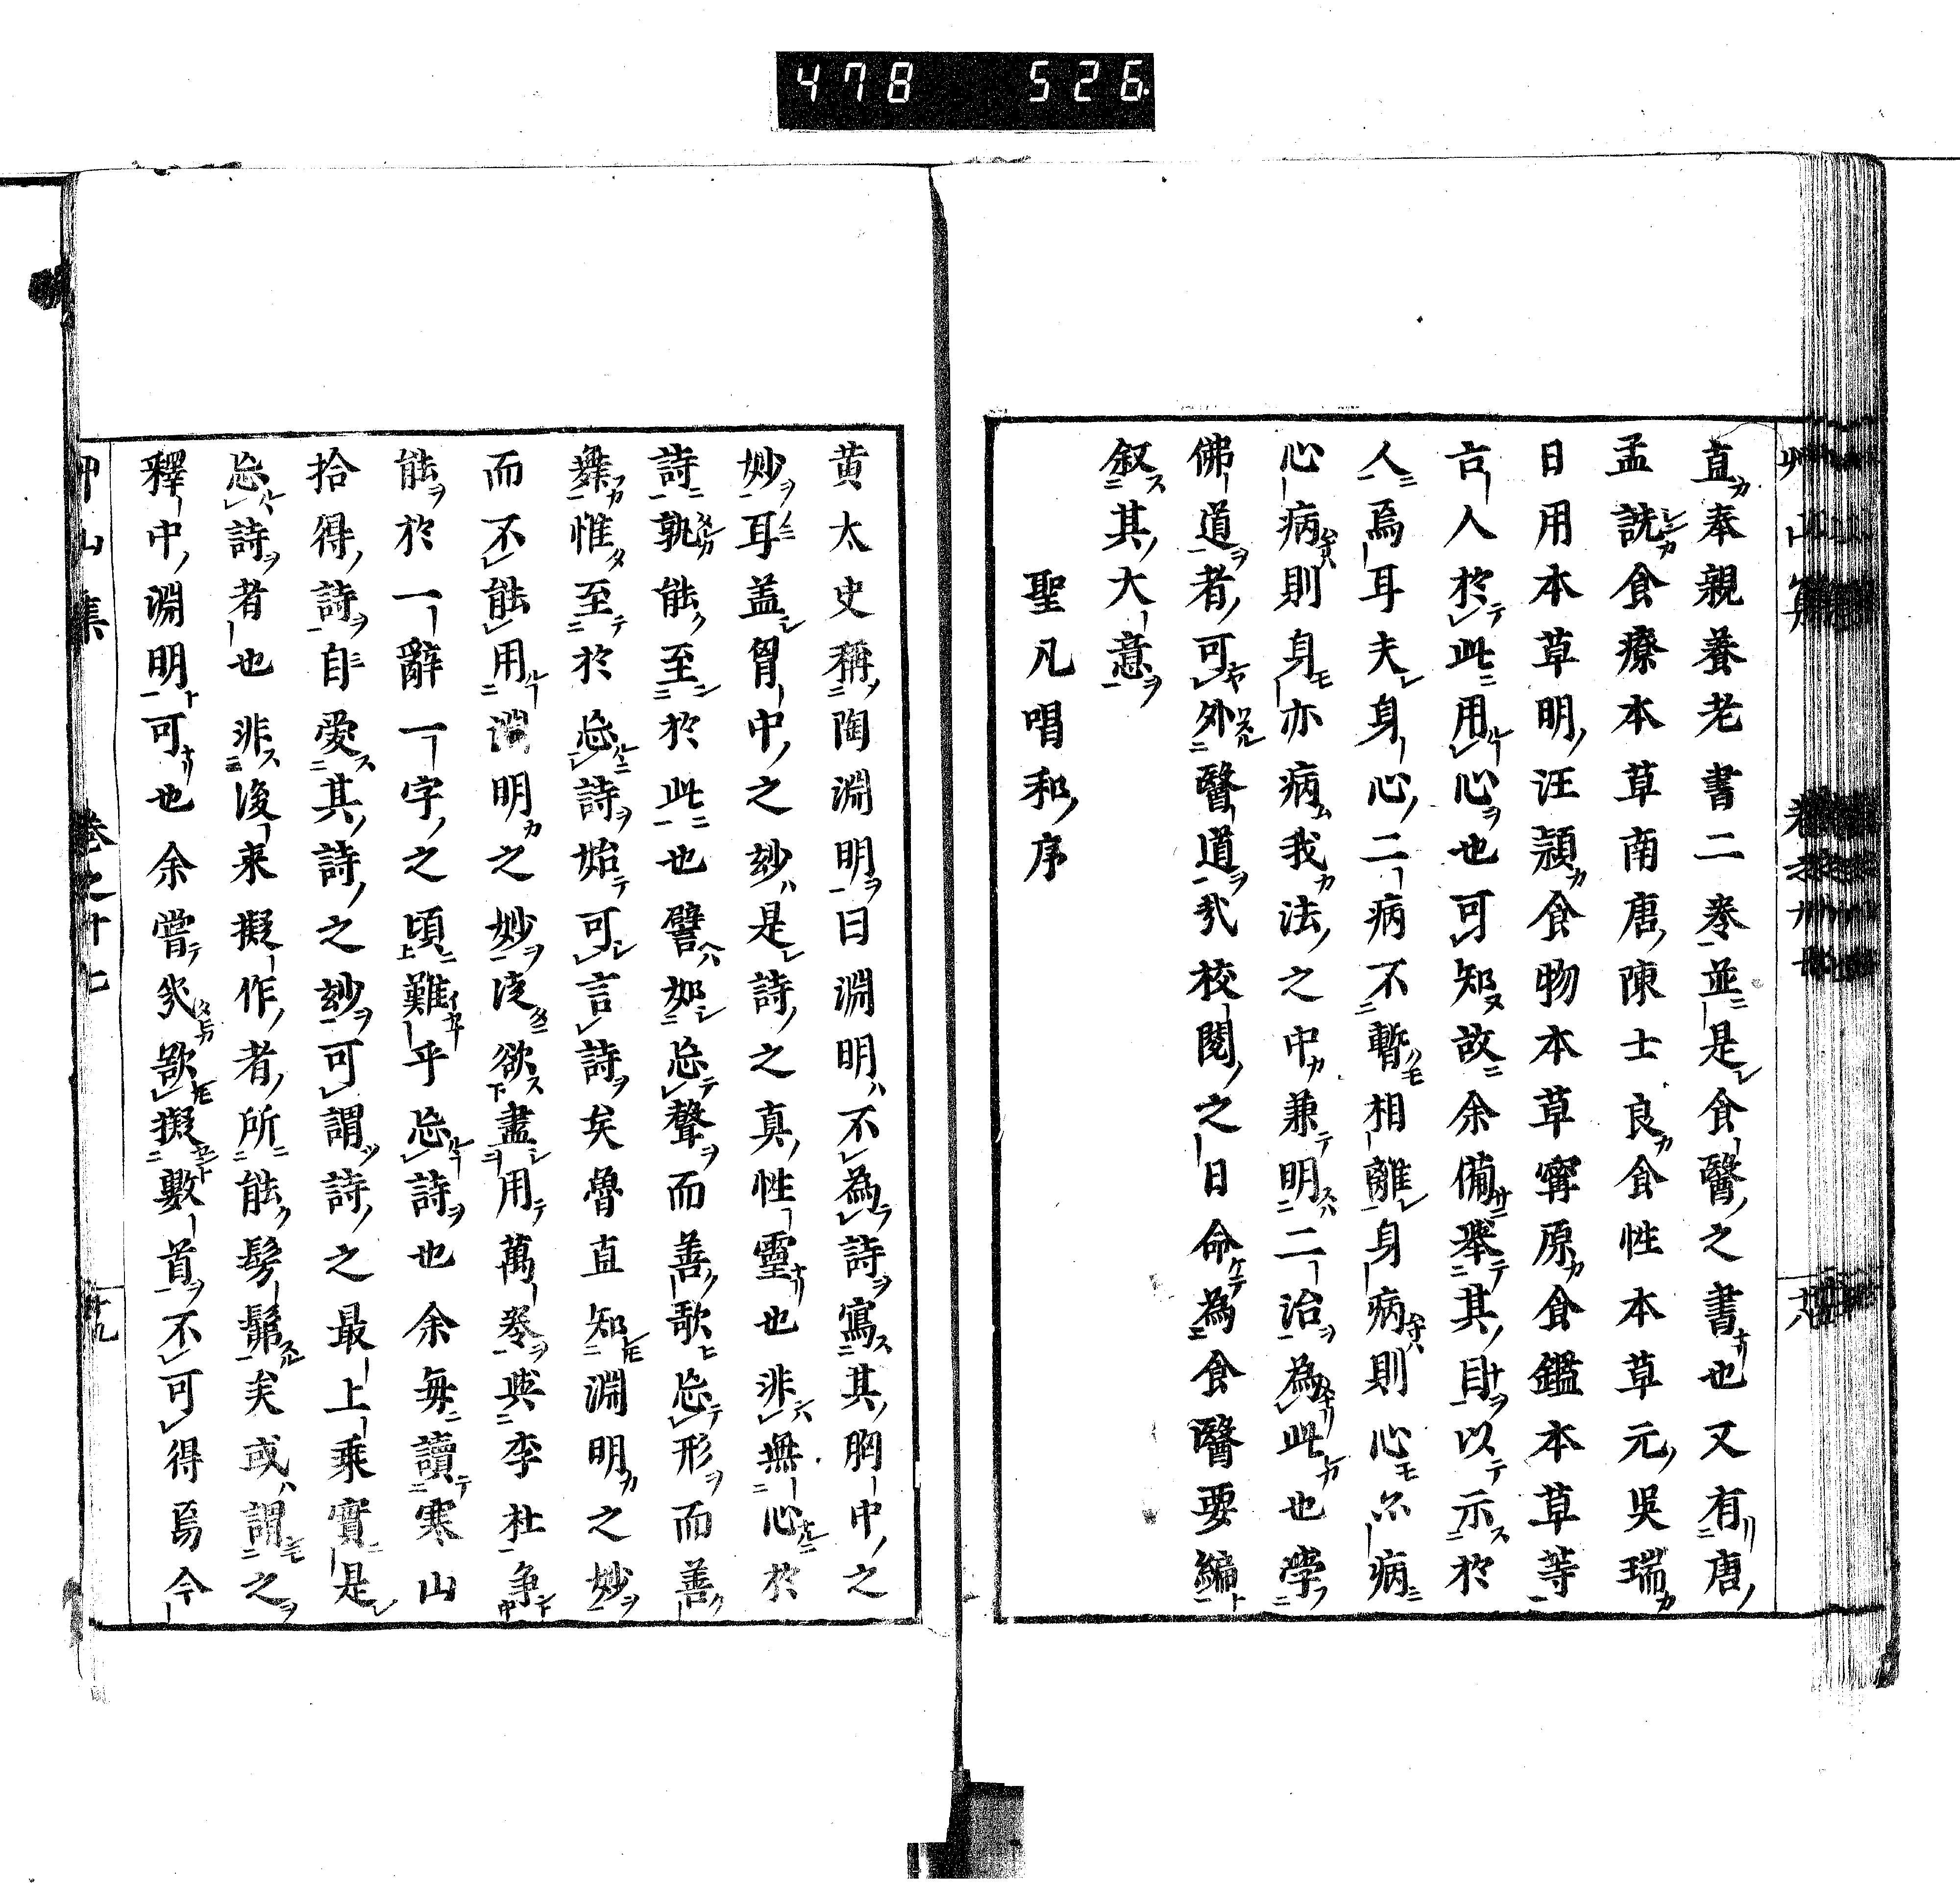 478 526
直奉親養老書二卷並是食醫之書也又有唐
孟詵食療本草南唐陳士良食性本草元吳瑞
日用本草明汪頴食物本草寧原食鑑本草等
古人於此用心也可知故余備舉其目以示於
人焉耳夫身心二病不暫相離身病則心亦病
心病則身亦病我法之中兼明二治為此也學
佛道者可外醫道哉校閱之日命為食醫要編
叙其大意
聖凡唱和序
黄太史稱陶淵明曰淵明不為詩寫其胸中之
妙耳盖胷中之玅是詩之真性靈也非無心於
詩孰能至於此也譬如忘聲而善歌忘形而善
舞惟至於忘詩始可言詩矣魯直知淵明之妙
而不能用淵明之妙從欲盡用萬卷與李杜爭
能於一辭一字之頃難乎忘詩也余每讀寒山
拾得詩自愛其詩之玅可謂詩之最上乘實是
忘詩者也非後来擬作者所能髣髴矣或謂之
釋中淵明可也余嘗戏欲擬數首不可得焉今
艸山集 卷之十七 十九